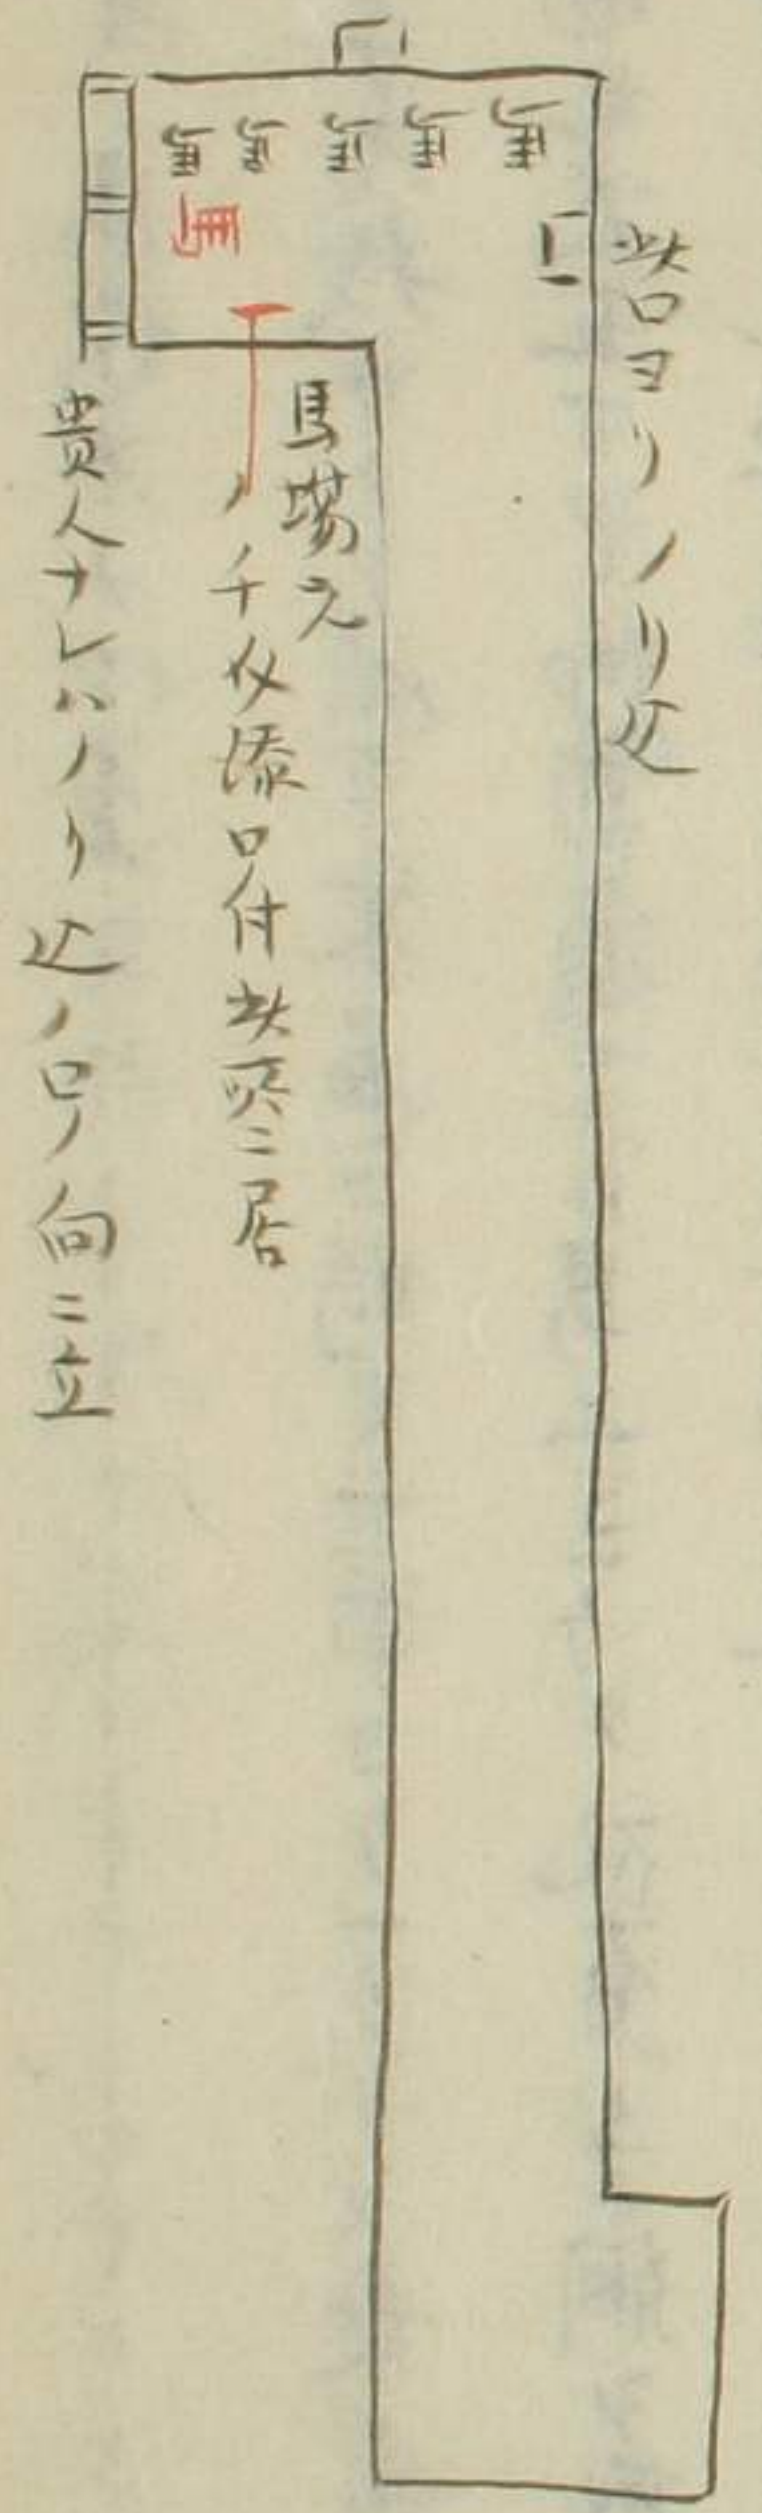 口
馬 馬 馬 馬 馬
馬
口
此口ヨリノリ込
馬場元
ノチ仪添口付此所ニ居
貴人ナレハノリ込ノ口ノ向ニ立